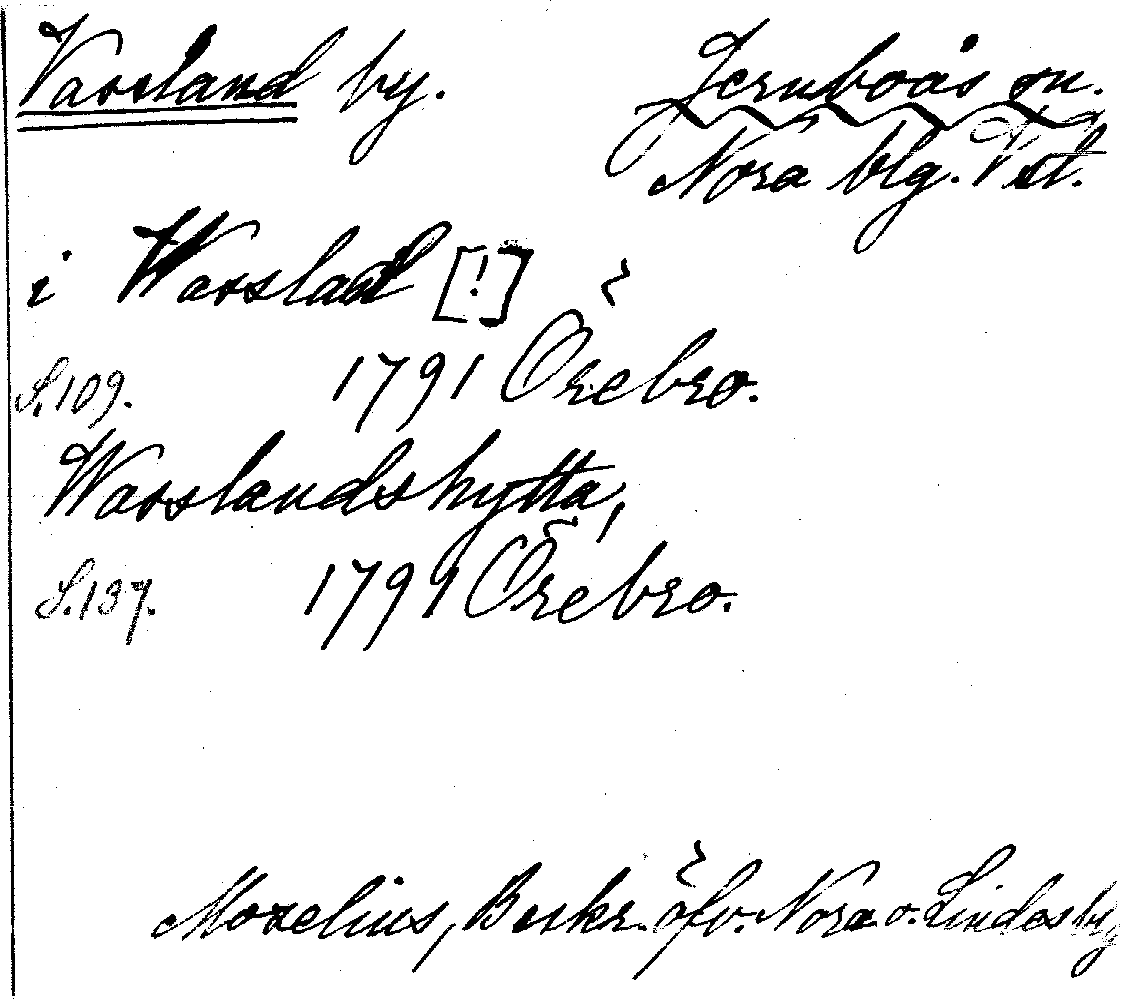 Vassland by. Jernboås sn.
Nora blg. Vstl.
i Wasslad [!]
S. 109. 1791 Örebro.
Wasslandshytta,
S. 137. 1799 Örebro.
Moxelius, Beskr. öfv. Nora o. Lindesby